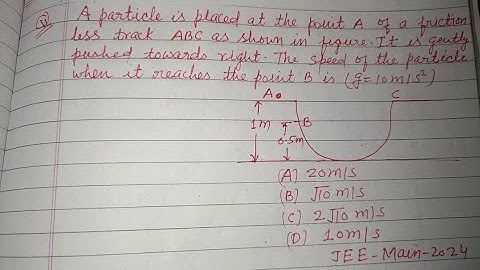 Q A particle is placed at the point A of a friction
less track ABC as shown in figure. It is gently
pushed towards right. The speed of the particle
when it reaches the point B is (g=10m/s²)
A C
1m B
0.5m
(A) 20m/s
(B) √10 m/s
(C) 2√10 m/s
(D) 10m/s
JEE-Main-2024